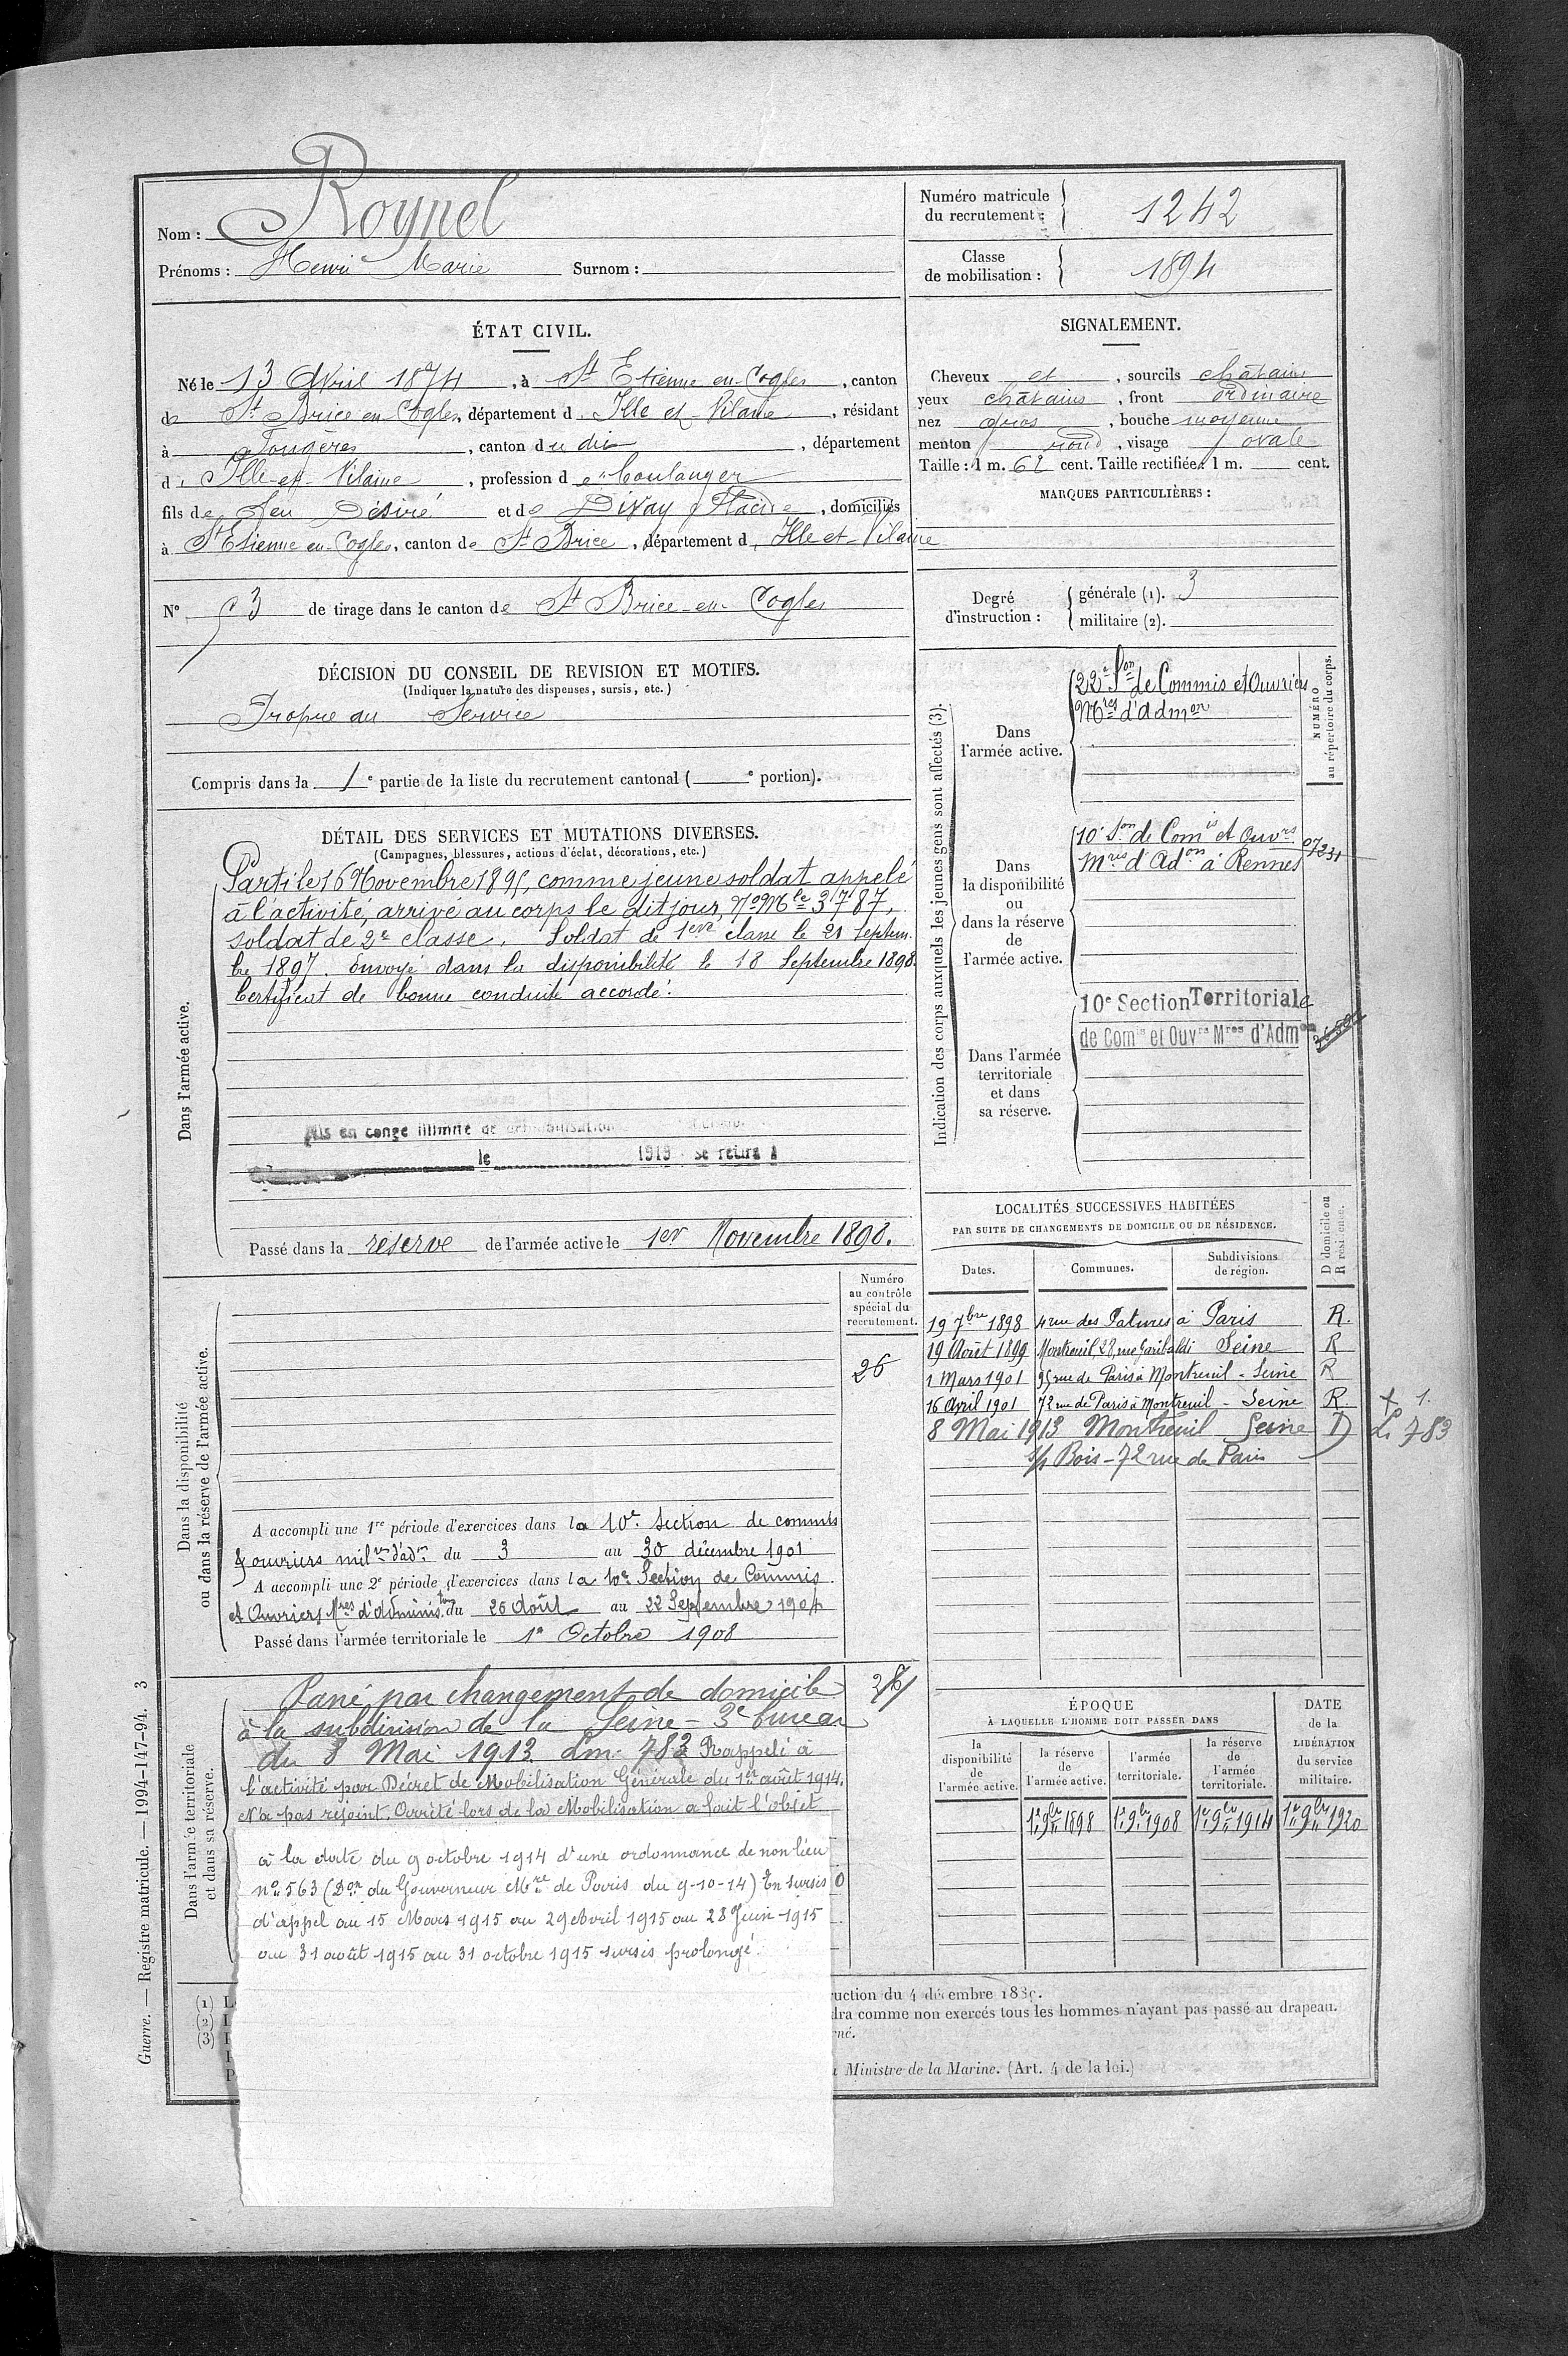 Nom : Roynel
Prénoms : Henri Marie Surnom :
Numéro matricule
du recrutement : 1242
Classe
de mobilisation : 1894
ÉTAT CIVIL.
Né le 13 Avril 1874, à St Etienne-en-Cogles, canton
de St Brice en Cogles, département d Ille et Vilaine, résidant
à Fougères, canton du dit, département
d'Ille-et-Vilaine, profession de boulanger
fils de feu Désiré et de Divay Placide, domiciliés
à St Etienne-en-Cogles, canton de St Brice, département d, Ille et Vilaine
N° 53 de tirage dans le canton de St Brice-en-Cogles
DÉCISION DU CONSEIL DE REVISION ET MOTIFS.
(Indiquer la nature des dispenses, sursis, etc.)
Propre au Service
Compris dans la 1e partie de la liste du recrutement cantonal ( e portion).
SIGNALEMENT.
Cheveux et, sourcils châtains
yeux châtains, front ordinaire
nez gros, bouche moyenne
menton rond, visage ovale
Taille : 1 m. 62 cent. Taille rectifiée : 1 m. cent.
MARQUES PARTICULIÈRES :
Degré
d'instruction :
générale (1). 3
militaire (2).
DÉTAIL DES SERVICES ET MUTATIONS DIVERSES.
(Campagnes, blessures, actions d'éclat, décorations, etc.)
Dans l'armée active.
Parti le 16 Novembre 1895, comme jeune soldat appelé
à l'activité, arrivé au corps le dit jour, No Mle 3787,
soldat de 2e classe. Soldat de 1ere classe le 21 Septem-
bre 1897. Envoyé dans la disponibilité le 18 Septembre 1898.
Certificat de bonne conduite accordé.
Mis en congé illimité de démobilisation
le 1919 se retire à
Passé dans la réserve de l'armée active le 1er Novembre 1898.
Indication des corps auxquels les jeunes gens sont affectés (3).
NUMÉRO
au répertoire du corps.
Dans
l'armée active.
22e Son de Commis et Ouvriers
Mres d'Admon
Dans
la disponibilité
ou
dans la réserve
de
l'armée active.
10e Son de Comis et Ouvrs
Mres d'Adon à Rennes
Dans l'armée
territoriale
et dans
sa réserve.
10e Section Territoriale
de Comis et Ouvrs Mres d'Admon
Dans la disponibilité
ou dans la réserve de l'armée active.
Numéro
au contrôle
spécial du
recrutement.
26
A accompli une 1re période d'exercices dans la 10e Section de commis
& ouvriers milres d'adon du 3 au 30 décembre 1901
A accompli une 2e période d'exercices dans la 10e Section de Commis
et Ouvriers Mres d'Administon du 26 Août au 22 Septembre 1904
Passé dans l'armée territoriale le 1er Octobre 1908
LOCALITÉS SUCCESSIVES HABITÉES
PAR SUITE DE CHANGEMENTS DE DOMICILE OU DE RÉSIDENCE.
Dates. Communes. Subdivisions
de région.
D domicile ou
R résidence.
19 7bre 1898 4 rue des Patures à Paris R.
19 Août 1899 Montreuil, 28, rue Garibaldi Seine R
1 Mars 1901 95 rue de Paris à Montreuil - Seine R
16 Avril 1901 72 rue de Paris à Montreuil - Seine R.
8 Mai 1913 Montreuil Seine D
s/s Bois - 72 rue de Paris
783
Dans l'armée territoriale
et dans sa réserve.
Passé par changement de domicile
à la subdivision de la Seine - 3e bureau
du 8 Mai 1913 dm. 783 Rappelé à
l'activité par Décret de Mobilisation Générale du 1er août 1914.
N'a pas rejoint. Arrêté lors de la Mobilisation a fait l'objet
à la date du 9 octobre 1914 d'une ordonnance de non lieu
no 563 (Don du Gouverneur Mre de Paris du 9-10-14) En sursis
d'appel au 15 Mars 1915 au 29 Avril 1915 au 28 Juin 1915
au 31 août 1915 au 31 octobre 1915 sursis prolongé.
ÉPOQUE
À LAQUELLE L'HOMME DOIT PASSER DANS
DATE
de la
LIBÉRATION
du service
militaire.
la
disponibilité
de
l'armée active.
la réserve
de
l'armée active.
l'armée
territoriale.
la réserve
de
l'armée
territoriale.
1er 9bre 1898 1er 9bre 1908 1er 9bre 1914 1er 9bre 1920
(1)
(2)
(3)
ruction du 4 décembre 1889.
dra comme non exercés tous les hommes n'ayant pas passé au drapeau.
rné.
Ministre de la Marine. (Art. 4 de la loi.)
Guerre. — Registre matricule. — 1994-147-94. 3